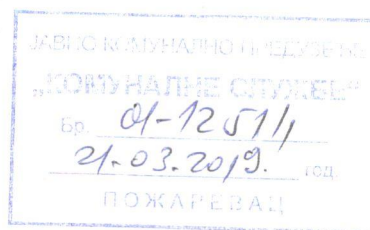 ЈАВНО КОМУНАЛНО ПРЕДУЗЕЋЕ
„КОМУНАЛНЕ СЛУЖБЕ"
Бр. 01-1251/1
21.03.2019. год.
ПОЖАРЕВАЦ